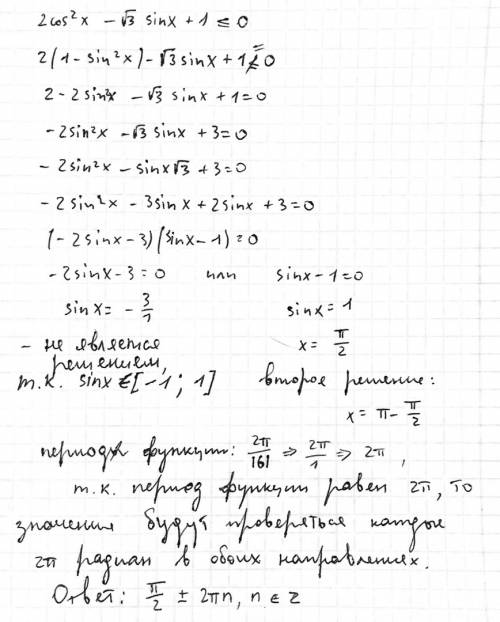 2cos²x - √3 sinx + 1 ≤ 0
2(1 - sin²x) - √3 sinx + 1 = 0
2 - 2sin²x - √3 sinx + 1 = 0
-2sin²x - √3 sinx + 3 = 0
-2sin²x - sinx√3 + 3 = 0
-2sin²x - 3sinx + 2sinx + 3 = 0
(-2sinx - 3)(sinx - 1) = 0
-2sinx - 3 = 0 или sinx - 1 = 0
sinx = -3/1 sinx = 1
- не является решением, x = π/2
т.к. sinx ∈ [-1; 1] второе решение:
x = π - π/2
период функции: 2π/|6| ⇒ 2π/1 ⇒ 2π,
т.к. период функции равен 2π, то
значения будут проверяться каждые
2π радиан в обоих направлениях.
Ответ: π/2 ± 2πn, n ∈ z